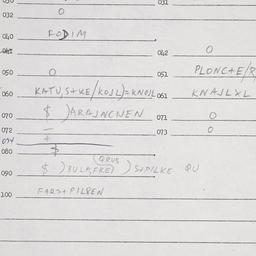 030 031
032 O
040 FODIM
041 042 O
050 O 051 PLONC+E/R
060 KATU,S+KE/KOJL)=KNOJL 061 KNAJLXL
070 $ )ARAJNCNEN 071 O
072 — 073 O
074 +
080 $
090 $ ) BULA,FKE) (QRUS) ) S+PILKE QU
100 FARS+ PILREN